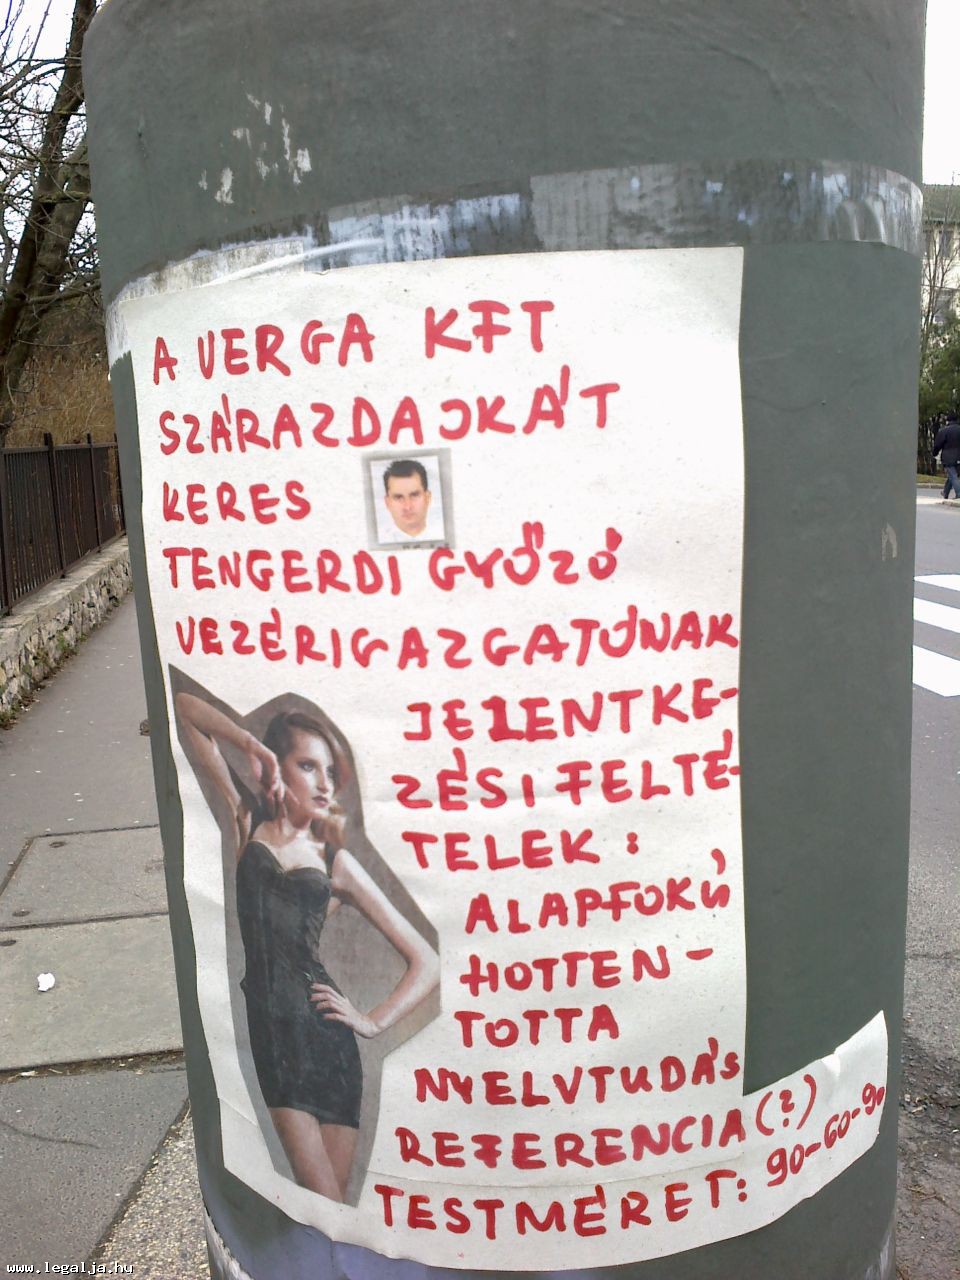 A VERGA KFT
SZÁRAZDAJKÁT
KERES
TENGERDI GYŐZŐ
VEZÉRIGAZGATÓNAK
JELENTKE-
ZÉSI FELTÉ-
TELEK:
ALAPFOKÚ
HOTTEN-
TOTTA
NYELVTUDÁS
REFERENCIA (?)
TESTMÉRET: 90-60-90
www.legalja.hu